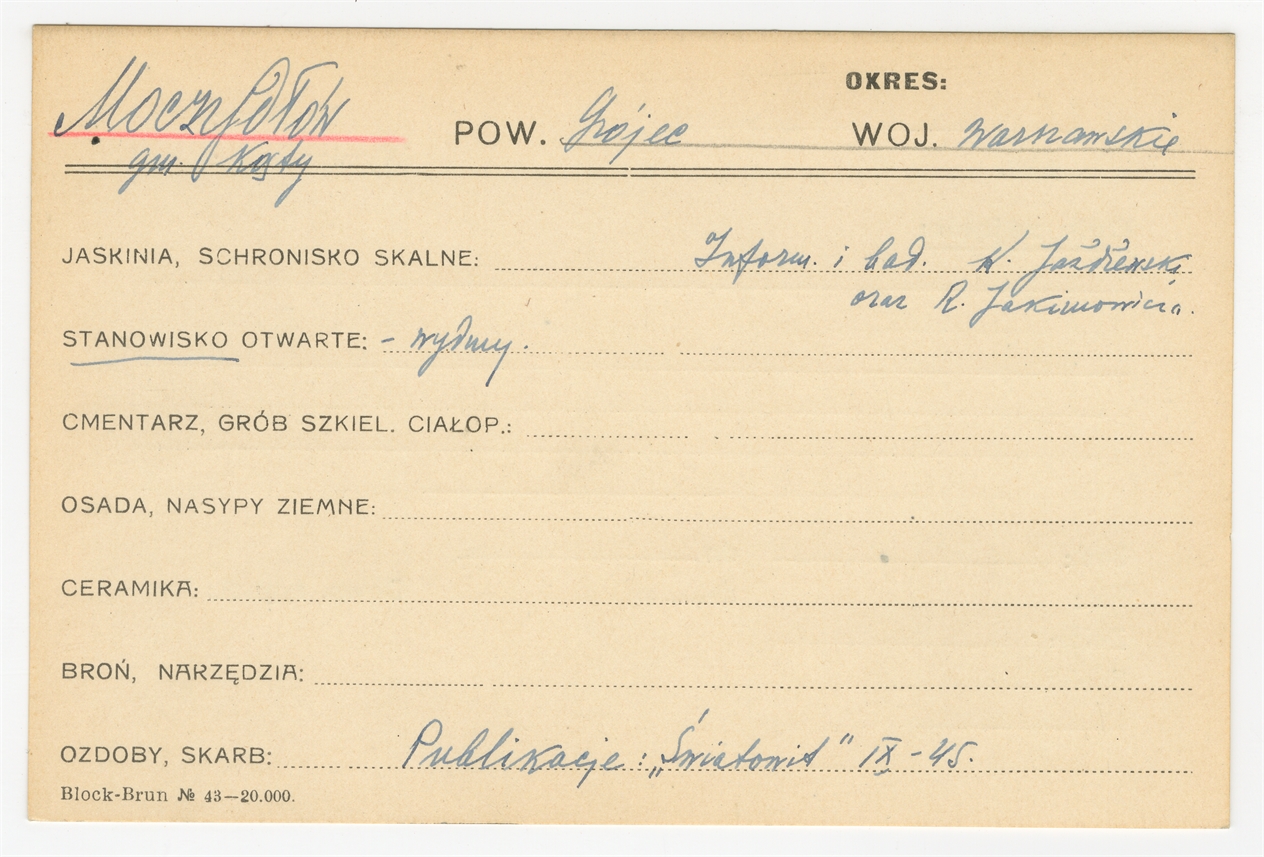 OKRES:
Moczydłów POW. Grójec WOJ. Warszawskie
gm. Kąty
JASKINIA, SCHRONISKO SKALNE: Inform. i bad. K. Jażdżewski
oraz R. Jakimowicza.
STANOWISKO OTWARTE: - wydmy.
CMENTARZ, GRÓB SZKIEL. CIAŁOP.:
OSADA, NASYPY ZIEMNE:
CERAMIKA:
BROŃ, NARZĘDZIA:
OZDOBY, SKARB: Publikacje: „Światowit" IX - 45.
Block-Brun № 43—20.000.